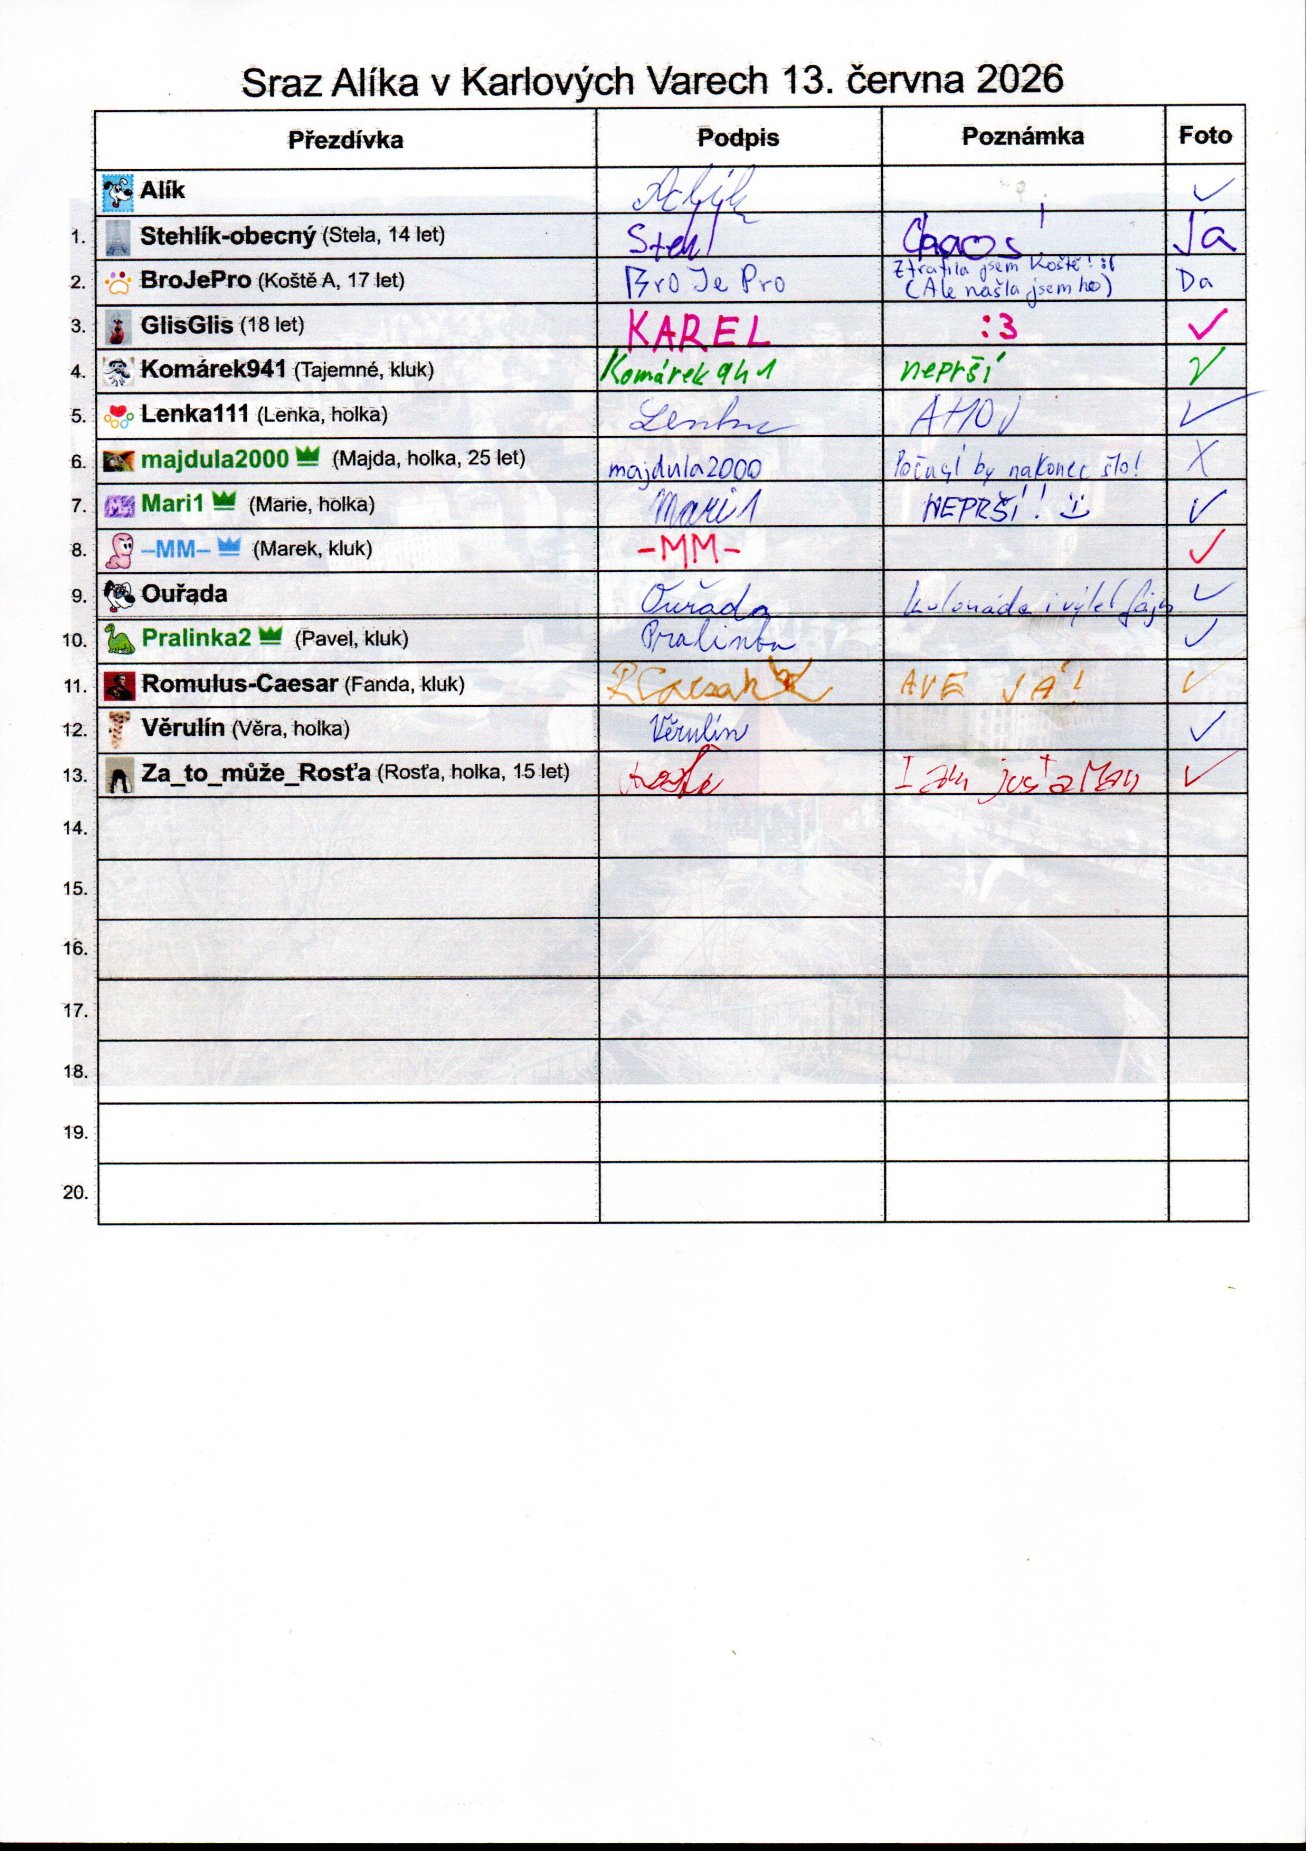 Sraz Alíka v Karlových Varech 13. června 2026
Přezdívka Podpis Poznámka Foto
Alík Alík ✓
1. Stehlík-obecný (Stela, 14 let) Steh Chaos! Ja
2. BroJePro (Koště A, 17 let) BroJePro Ztratila jsem Koště! :(
(Ale našla jsem ho) Da
3. GlisGlis (18 let) KAREL :3 ✓
4. Komárek941 (Tajemné, kluk) Komárek941 neprší ✓
5. Lenka111 (Lenka, holka) Lenka AHOJ ✓
6. majdula2000 (Majda, holka, 25 let) majdula2000 Počasí by nakonec šlo! X
7. Mari1 (Marie, holka) Mari1 NEPRŠÍ! :) ✓
8. –MM– (Marek, kluk) -MM- ✓
9. Ouřada Ouřada kolonáda i výlet fajn ✓
10. Pralinka2 (Pavel, kluk) Pralinka ✓
11. Romulus-Caesar (Fanda, kluk) RCaesar AVE JÁ! ✓
12. Věrulín (Věra, holka) Věrulín ✓
13. Za_to_může_Rosťa (Rosťa, holka, 15 let) I am just a Man ✓
14.
15.
16.
17.
18.
19.
20.